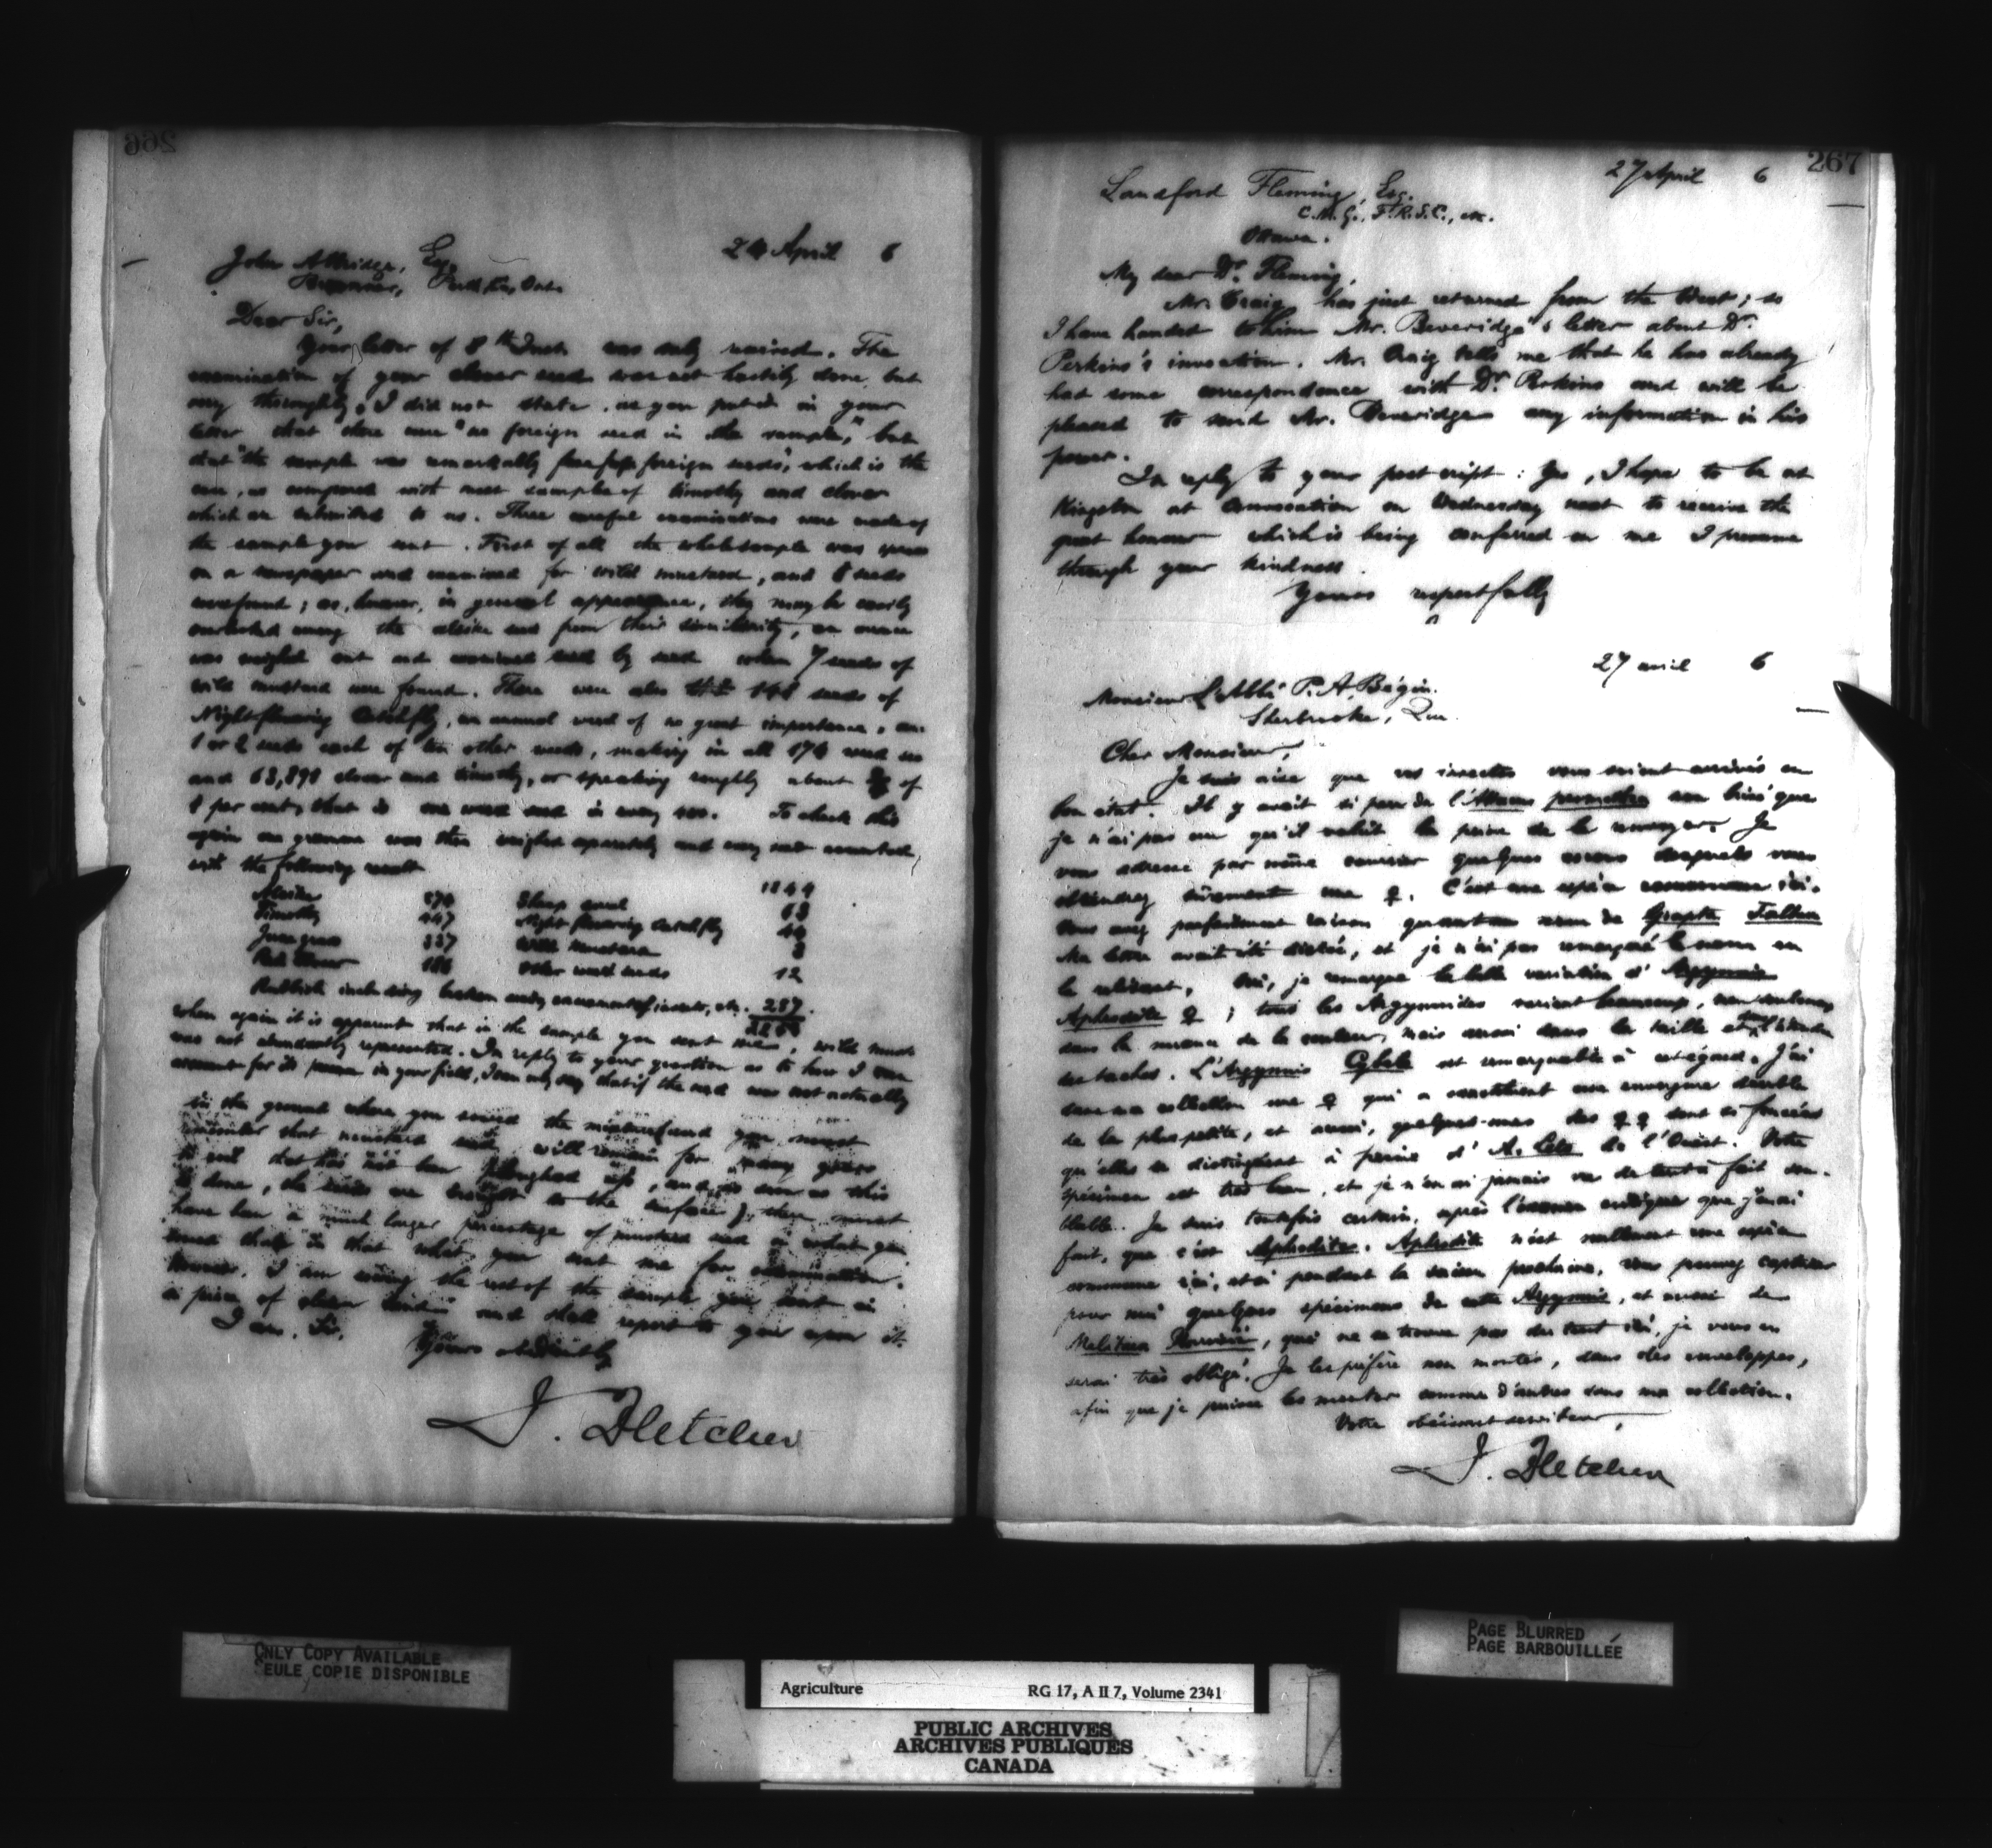 266
24 April 6
John Esq.
Ont.
Dear Sir,
Your letter of 8th Inst. was duly received. The
examination of your clover seed was not hastily done, but
very thoroughly. I did not state, as you put it in your
letter that there were "no foreign seed in the sample," but
that "the sample was remarkably free from foreign seeds", which is the
case, as compared with most samples of timothy and clover
which are submitted to us. Three careful examinations were made of
the sample you sent. First of all the whole sample was
on a newspaper and examined for wild mustard, and 8 seeds
were found; as, however, in general appearance, they may be easily
overlooked among the alsike seed from their similarity, an ounce
was weighed out and examined seed by seed when 7 seeds of
wild mustard were found. There were also 148 seeds of
Night-flowering Catchfly, an annual weed of no great importance,
1 or 2 seeds each of ten other weeds, making in all 174 weed
and 63,898 clover and timothy, or speaking roughly about of
1 per cent, that is one weed seed in every To check this
again one gramme was then weighed separately and every seed counted,
with the following result
Alsike Sheep sorrel 63
Timothy 447 Night flowering Catchfly
June grass 337 Wild Mustard
Red Clover 186 Other weed seeds 12
Rubbish including broken seeds, excrement of insects, etc. 287
when again it is apparent that in the sample you sent wild
was not abundantly represented. In reply to your question as to how I can
account for its presence in your field, I can only say that if the seed was not actually
in the ground where you sowed the mixture and you must
remember that mustard seed will remain for many years
in soil that has not been ploughed up, and as soon as this
is done, the seeds are brought to the surface; there must
have been a much larger percentage of mustard seed in what you
sowed than in that what you sent me for examination.
However, I am sowing the rest of the sample you sent in
a piece of clean land and shall report to you upon it.
I am, Sir,
Yours
J. Fletcher
267
27 April 6
Sandford Fleming, Esq.
C.M.G., F.R.S.C., etc.
Ottawa.
My dear Dr. Fleming,
Mr. Craig has just returned from the West; so
I have handed to him Mr. Beveridge's letter about Dr.
Perkins's invocation. Mr. Craig tells me that he has already
had some correspondence with Dr. Perkins and will be
pleased to send Mr. Beveridge any information in his
power.
In reply to your postscript: Yes, I hope to be at
Kingston at Convocation on Wednesday next to receive the
great honour which is being conferred on me I presume
through your kindness.
Yours respectfully
27 avril 6
Monsieur L'Abbé P. A. Bégin.
Sherbrooke, Que.
Cher Monsieur,
Je suis aise que vos insectes vous soient arrivés en
bon état. Il y avait si peu de l'Attacus promethea non brisé que
je n'ai pas cru qu'il valait la peine de le renvoyer. Je
vous adresse par même courrier quelques cocons desquels vous
obtiendrez sûrement une ♀. C'est une espèce commune ici.
Vous avez parfaitement raison quant au nom de Grapta
Ma lettre avait été dictée, et je n'ai pas remarqué le nom en
la relisant. Oui, je remarque la belle variation d'Argynnis
Aphrodite ♀; tous les Argynnides varient beaucoup, non seulement
dans la nuance de la couleur, mais aussi dans la taille et
des taches. L'Argynnis Cybele est remarquable à cet égard. J'ai
dans ma collection une ♀ qui a exactement une envergure double
de la plus petite, et aussi, quelques-unes des ♀♀ sont si foncées
qu'elles se distinguent à peine d'A. Leto de l'Ouest. Votre
spécimen est très beau, et je n'en ai jamais vu de tout à fait sem-
blable. Je suis toutefois certain, après l'examen critique que j'en ai
fait, que c'est Aphrodite. Aphrodite n'est nullement une espèce
commune ici, et si pendant la saison prochaine, vous pouvez capturer
pour moi quelques spécimens de cette Argynnis, et aussi de
Melitaea Harrisii, qui ne se trouve pas du tout ici, je vous en
serai très obligé. Je les préfère non montés, dans des enveloppes,
afin que je puisse les monter comme d'autres dans ma collection.
Votre obéissant serviteur,
J. Fletcher
ONLY COPY AVAILABLE
SEULE COPIE DISPONIBLE
PAGE BLURRED
PAGE BARBOUILLÉE
Agriculture RG 17, A II 7, Volume 2341
PUBLIC ARCHIVES
ARCHIVES PUBLIQUES
CANADA